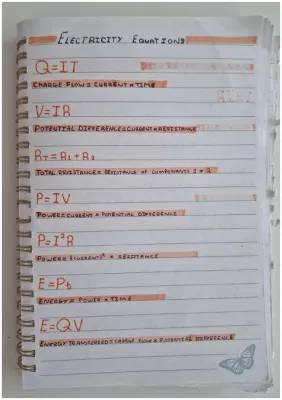 ELECTRICITY EQUATIONS
Q=IT
CHARGE FLOW= CURRENT × TIME
V=IR
POTENTIAL DIFFERENCE=CURRENT × RESISTANCE
RT=R1+R2
TOTAL RESISTANCE= RESISTANCE OF COMPONENTS 1 + 2
P=IV
POWER=CURRENT × POTENTIAL DIFFERENCE
P=I²R
POWER= (CURRENT)² × RESISTANCE
E=Pt
ENERGY= POWER × TIME
E=QV
ENERGY TRANSFERRED= CHARGE FLOW × POTENTIAL DIFFERENCE